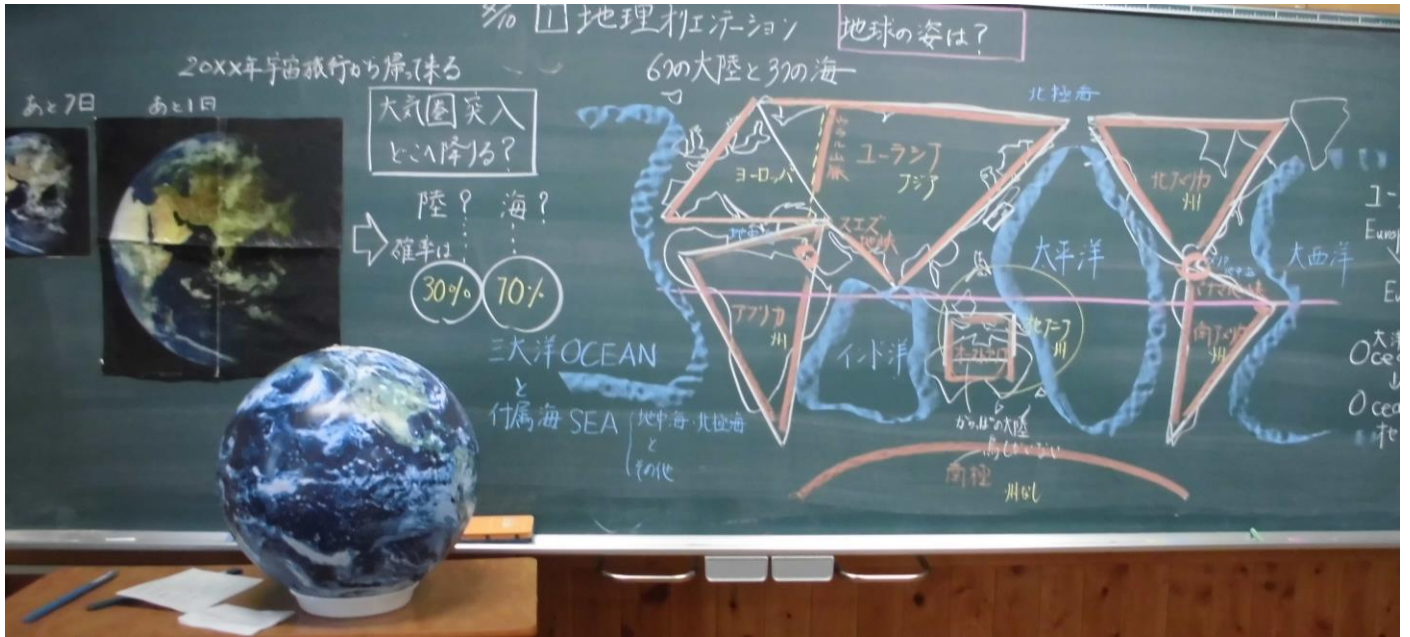 4/10 1 地理オリエンテーション
地球の姿は?
20XX年宇宙旅行から帰って来る
あと7日
あと1日
大気圏突入
どこへ降りる?
陸? 海?
確率は
30% 70%
三大洋 OCEAN
と
付属海 SEA
地中海・北極海
と
その他
6つの大陸と3つの海
北極海
ヨーロッパ
ウラル山脈
ユーラシア
アジア
スエズ
地峡
アフリカ
州
インド洋
太平洋
北アメリカ
州
大西洋
南アメリカ
州
州
からっぽの大陸
南極
州なし
ユー
Europ
↓
Eu
大洋
Ocea
↓
Ocea